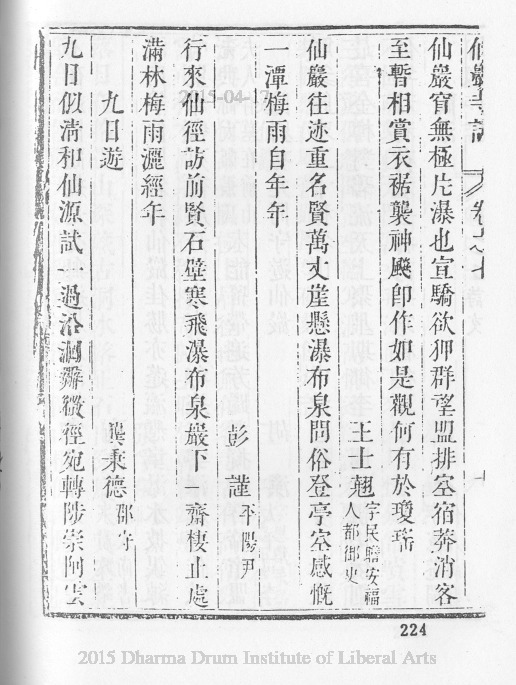 仙巖寺志 卷之七
仙巖窅無極片瀑也宣驕欲狎群望盟排空宿莽消客
至暫相賞衣裾襲神飇卽作如是觀何有於瓊瑤
王士翹 字民瞻安福
人都御史
仙巖往迹重名賢萬丈崖懸瀑布泉問俗登亭空感慨
一潭梅雨自年年
彭謹 平陽尹
行來仙徑訪前賢石壁寒飛瀑布泉巖下一齋棲止處
滿林梅雨灑經年
九日遊 龔秉德 郡守
九日似清和仙源試一過沿洄躋微徑宛轉陟崇阿雲
224
2015 Dharma Drum Institute of Liberal Arts